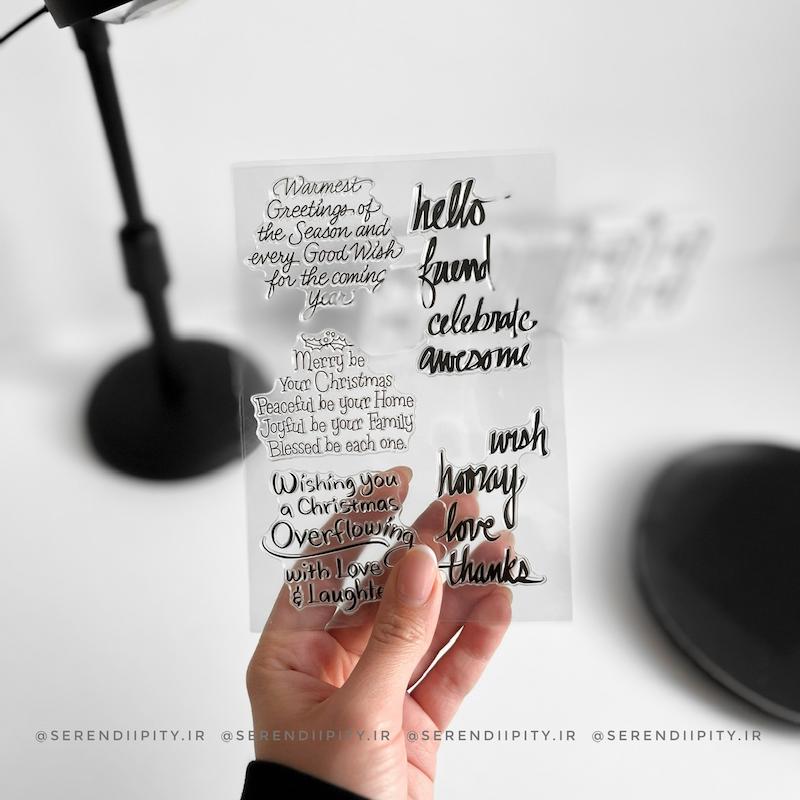 Warmest
Greetings of
the Season and
every Good Wish
for the coming
Year
Merry be
Your Christmas
Peaceful be your Home
Joyful be your Family
Blessed be each one.
Wishing you
a Christmas
Overflowing
with Love
& Laughte
hello
friend
celebrate
awesome
wish
hooray
love
thanks
@SERENDIIPITY.IR @SERENDIIPITY.IR @SERENDIIPITY.IR @SERENDIIPITY.IR